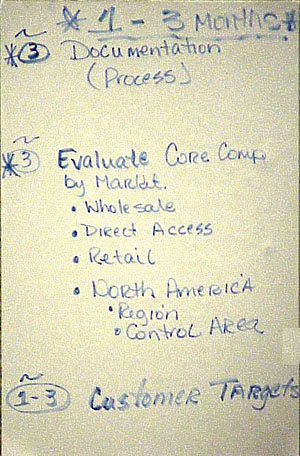 * 1 - 3 Months *
* ~3 Documentation
(Process)
* ~3 Evaluate Core Comp
by Market.
• Wholesale
• Direct Access
• Retail
• North America
• Region
• Control Area
~1-3 Customer Targets